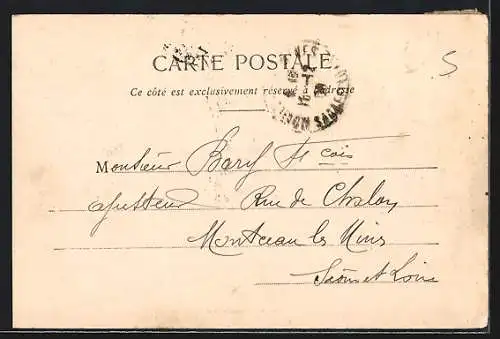 5
CARTE POSTALE.
Ce côté est exclusivement réservé à l'adresse
Monsieur Bary Fcois
ajusteur Rue de Chalon
Montceau les Mines
Saône et Loire